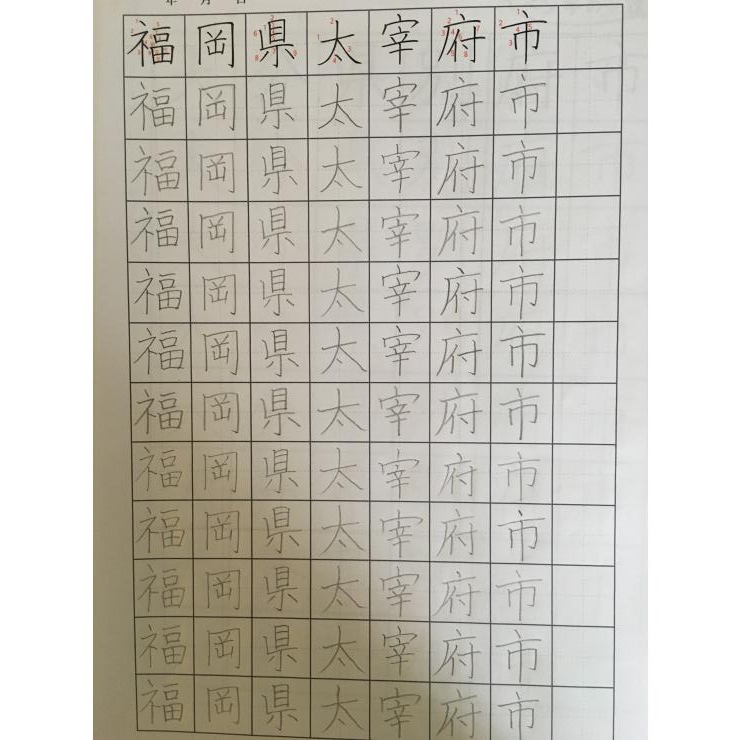 年 月 日
福岡県太宰府市
福岡県太宰府市
福岡県太宰府市
福岡県太宰府市
福岡県太宰府市
福岡県太宰府市
福岡県太宰府市
福岡県太宰府市
福岡県太宰府市
福岡県太宰府市
福岡県太宰府市
福岡県太宰府市